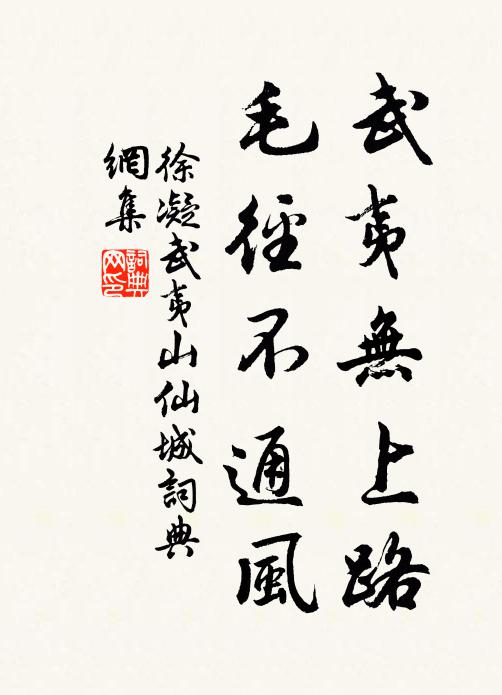 武夷無上路
毛徑不通風
徐凝武夷山仙城詞典
網集
詞典
网印